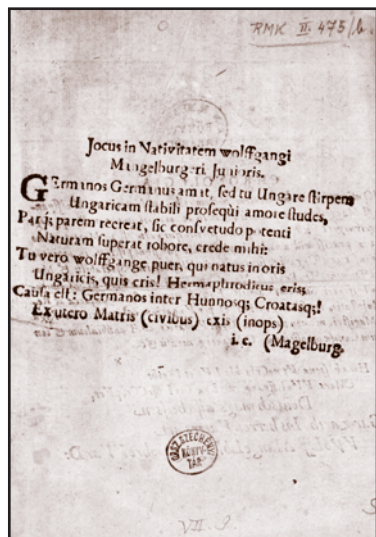 RMK II. 475/b.
Jocus in Nativitatem wolffgangi
Magelburgeri Junioris.
GErmanos Germanus amat, sed tu Ungare stirpem
Ungaricam stabili prosequi amore studes,
Par parem recreat, sic consvetudo potenti
Naturam superat robore, crede mihi:
Tu vero wolffgange puer, qui natus in oris
Ungaricis, quis eris! Hermaphroditus eris;
Causa est: Germanos inter Hunnosq; Croatasq;!
Ex utero Matris (civibus) exis (inops)
i. e. (Magelburg.
ORSZ. SZÉCHÉNYI
KÖNYV-
TÁR
VII. 9.